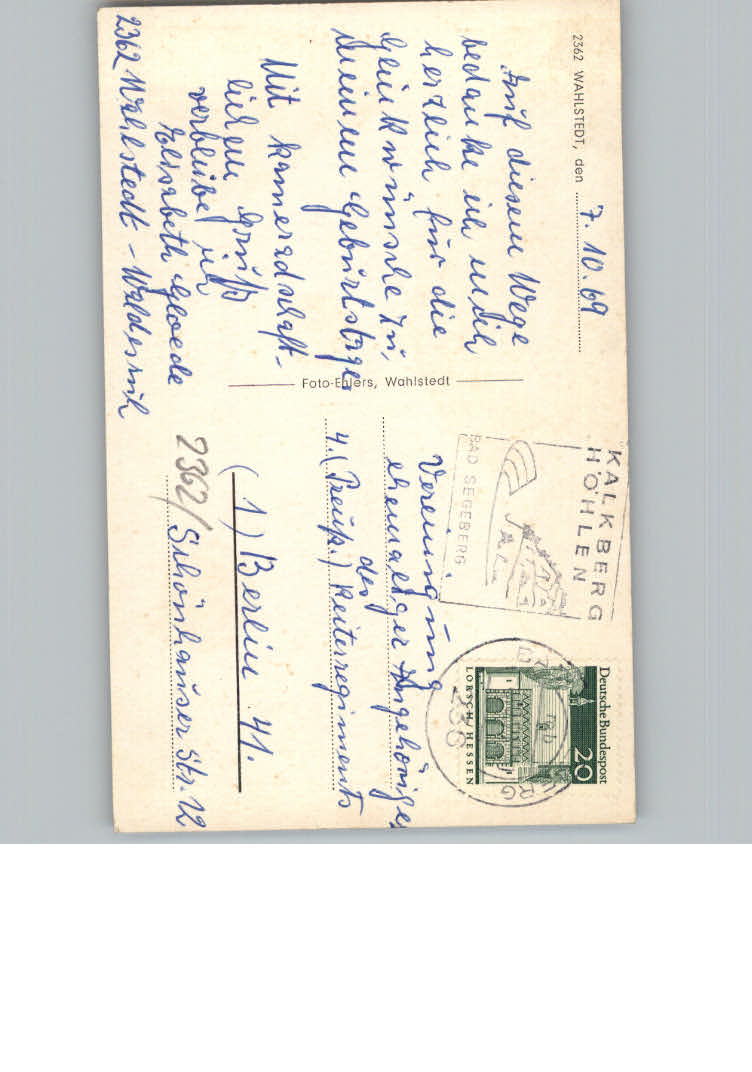 2362 WAHLSTEDT, den 7. 10. 69
Auf diesem Wege
bedanke ich mich
herzlich für die
Glückwünsche zu
meinem Geburtstage
Mit kameradschaft-
lichem Gruß
verbleibe ich
Elisabeth Gloede
2362 Wahlstedt - Waldesruh
Foto-Ehlers, Wahlstedt
KALKBERG
HÖHLEN
BAD SEGEBERG
Deutsche Bundespost
20
LORSCH/HESSEN
236
Vereinigung
ehemaliger Angehöriger
des
4. (Preuß.) Reiterregiments
(1) Berlin 41.
2362/ Schönhauser Str. 12